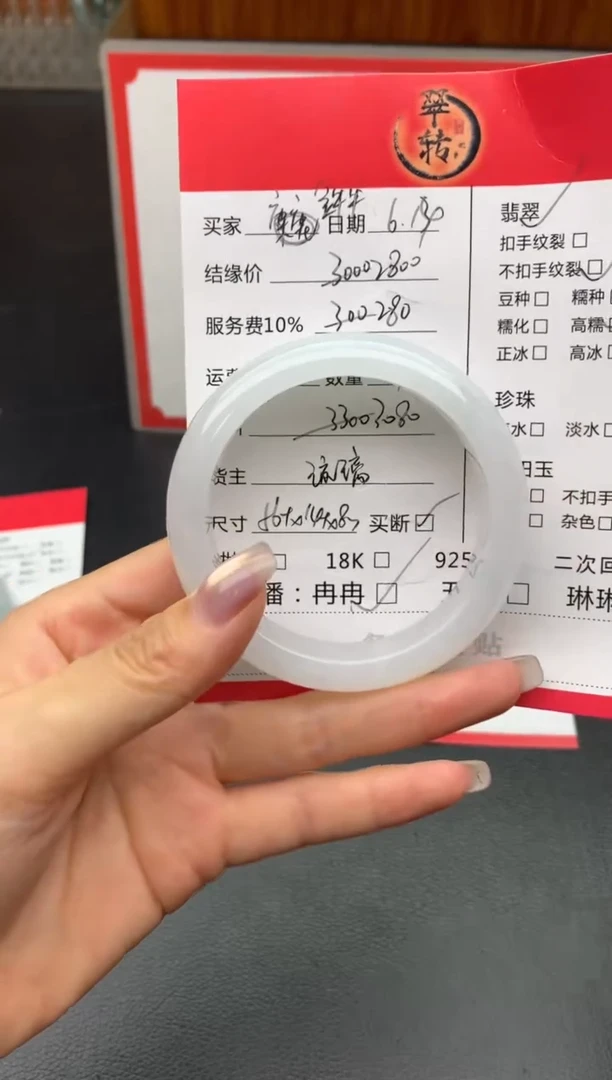 翠转
买家 日期 6.
结缘价 3000 2800
服务费10% 300-280
数量
3300 3080
货主 琉璃
尺寸 买断☑
18K □ 925
播：冉冉 □
翡翠
扣手纹裂 □
不扣手纹裂 □
豆种 □ 糯种
糯化 □ 高糯
正冰 □ 高冰
珍珠
水 □ 淡水 □
田玉
□ 不扣手
□ 杂色 □
二次回
□ 琳琳
贴